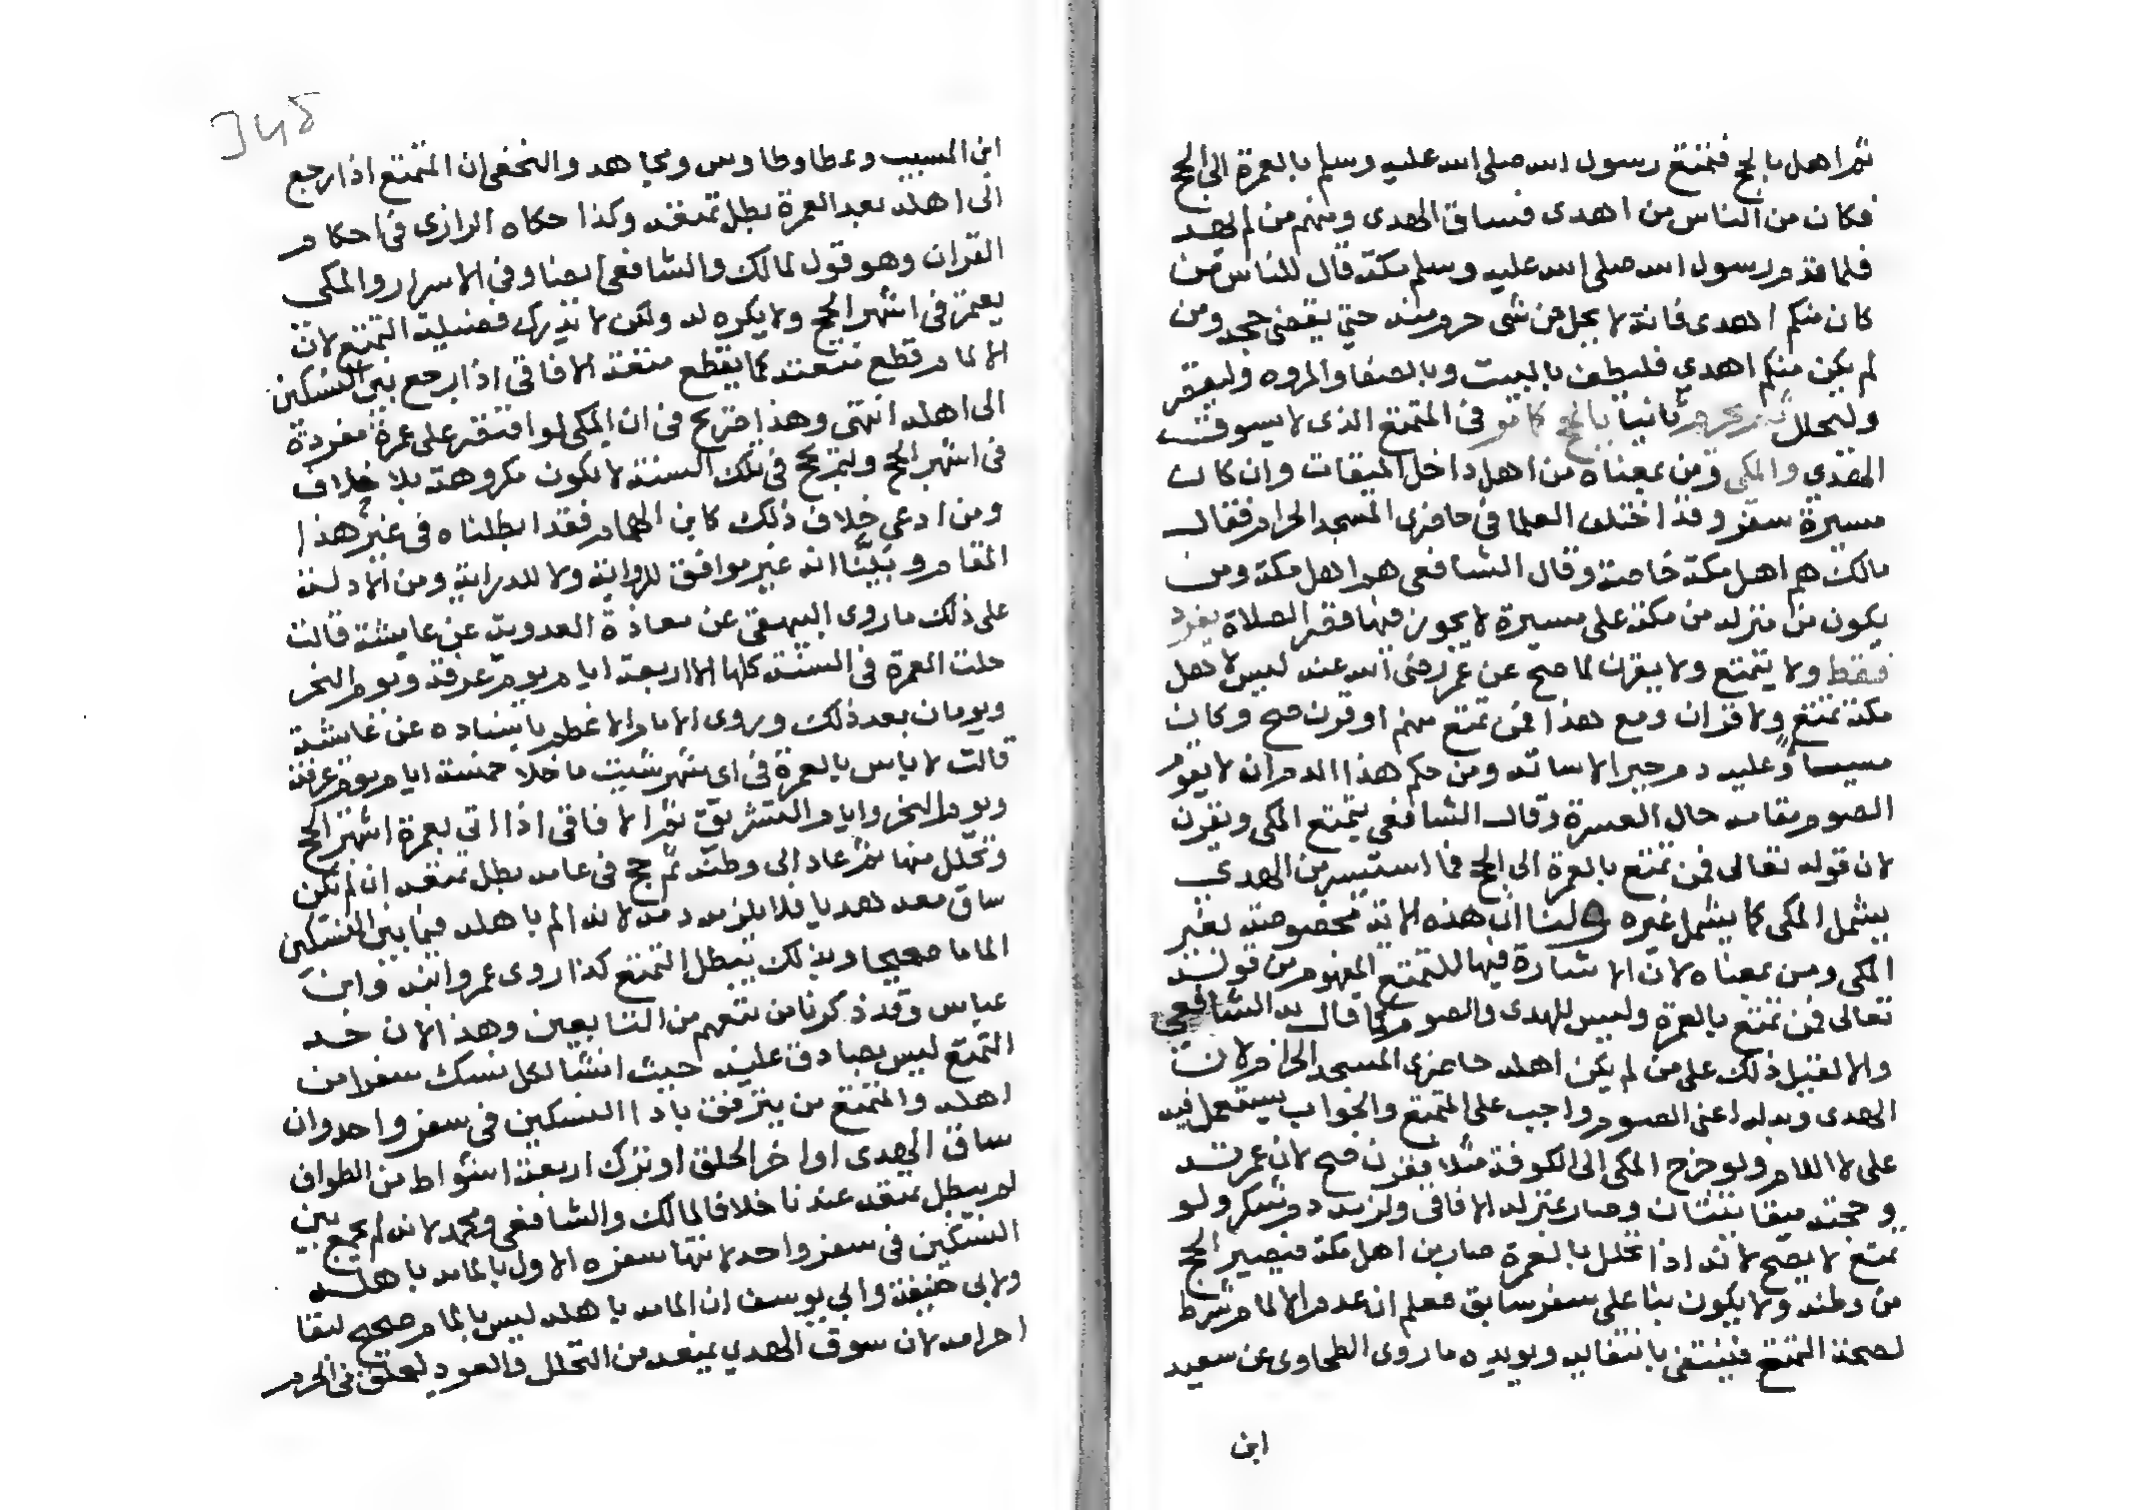 ثم اهل بالحج فتمتع رسول الله صلى الله عليه وسلم بالعمرة الى الحج
فكان من الناس من اهدى فساق الهدى ومنهم من لم يهد
فلما قدم رسول الله صلى الله عليه وسلم مكة قال للناس من
كان منكم اهدى فانه لا يحل من شى حرم منه حتى يقضى حجه ومن
لم يكن منكم اهدى فليطف بالبيت وبالصفا والمروه وليقصر
وليحلل ثم يحرم ثانيا بالحج كما مر فى المتمتع الذى لا يسوق
الهدى والمكى ومن بمعناه من اهل داخل الميقات وان كان
مسيرة سفر وقد اختلف العلما فى حاضرى المسجد الحرام فقال
مالك هم اهل مكة خاصة وقال الشافعى هم اهل مكة ومن
يكون من منزله من مكة على مسيرة لا يجوز فيها قصر الصلاة يفرد
فقط ولا يتمتع ولا يقرن لما صح عن عمر رضى الله عنه ليس لاهل
مكة تمتع ولا قران ومع هذا فمن تمتع منهم او قرن صح وكان
مسيسا وعليه دم جبر الاساته ومن حكم هذا الدم ان لا يقوم
الصوم مقامه حال العسرة وقال الشافعى يتمتع المكى ويقرن
لان قوله تعالى فمن تمتع بالعمرة الى الحج فما استيسر من الهدى
يشمل المكى كما يشمل غيره ولنا ان هذه الاية مخصوصة بغير
المكى ومن بمعناه لان الاشارة فيها للتمتع المفهوم من قوله
تعالى فمن تمتع بالعمرة وليس للهدى والصوم كما قال به الشافعي
والا لقيل ذلك على من لم يكن اهله حاضرى المسجد الحرام لان
الهدى وبدله اعنى الصوم واجب على المتمتع والجواب يستعمل فيه
على لا اللام ولو خرج المكى الى الكوفة مثلا فقرن صح لان عمرته
وحجته ميقاتيتان وصار بمنزلة الافاقى ولزمه دم شكر ولو
تمتع لا يصح لانه اذا تحلل بالعمرة صار من اهل مكة فيصير الحج
من وطنه ولا يكون بنا على سفر سابق فعلم ان عدم الالمام شرط
لصحة التمتع فينتفى بانتفايه ويويده ما روى الطحاوى عن سعيد
ابن
345
ابن المسيب وعطا وطاوس ومجاهد والنخعى ان المتمتع اذا رجع
الى اهله بعد العمرة بطل تمتعه وكذا حكاه الرازى فى احكام
القران وهو قول لمالك والشافعى ايضا وفى الاسرار والمكى
يعتمر فى اشهر الحج ولا يكره له ولكن لا تدرك فضيلة التمتع لان
الالمام قطع متعته كما يقطع متعة الافاقى اذا رجع بين النسكين
الى اهله انتهى وهذا صريح فى ان المكى لو اقتصر على عمرة مفردة
فى اشهر الحج ولم يحج فى تلك السنة لا يكون مكروهة بلا خلاف
ومن ادعى خلاف ذلك كابن الهمام فقد ابطلناه فى غير هذا
المقام وبينا انه غير موافق للرواية ولا للدراية ومن الادلة
على ذلك ما روى البيهقى عن معاذة العدوية عن عايشة قالت
حلت العمرة فى السنة كلها الا اربعة ايام يوم عرفة ويوم النحر
ويومان بعد ذلك وروى الامام الاعظم باسناده عن عايشة
قالت لا باس بالعمرة فى اى شهر شيت ما خلا خمسة ايام يوم عرفة
ويوم النحر وايام التشريق ثم الافاقى اذا اتى بعمرة اشهر الحج
وتحلل منها ثم عاد الى وطنه ثم حج فى عامه بطل تمتعه ان لم يكن
ساق معه هديا فلا يلزمه دمه لانه الم باهله فيما بين النسكين
الماما صحيحا وبذلك يبطل التمتع كذا روى عمر وابنه وابن
عباس وقد ذكرنا من تبعهم من التابعين وهذا لان حد
التمتع ليس بصادق عليه حيث انشا لكل نسك سفرا من
اهله والمتمتع من يترفق باداا النسكين فى سفر واحد وان
ساق الهدى او اخر الحلق او ترك اربعة اشواط من الطواف
لم يبطل تمتعه عندنا خلافا لمالك والشافعى ومحمد لانه لم يجمع بين
النسكين فى سفر واحد لانتها سفره الاول بالمامه باهله
ولابى حنيفة وابي يوسف ان المامه باهله ليس بالمام صحيح لبقا
احرامه لان سوق الهدي يمنعه من التحلل والعود لتعلق فى الحرم